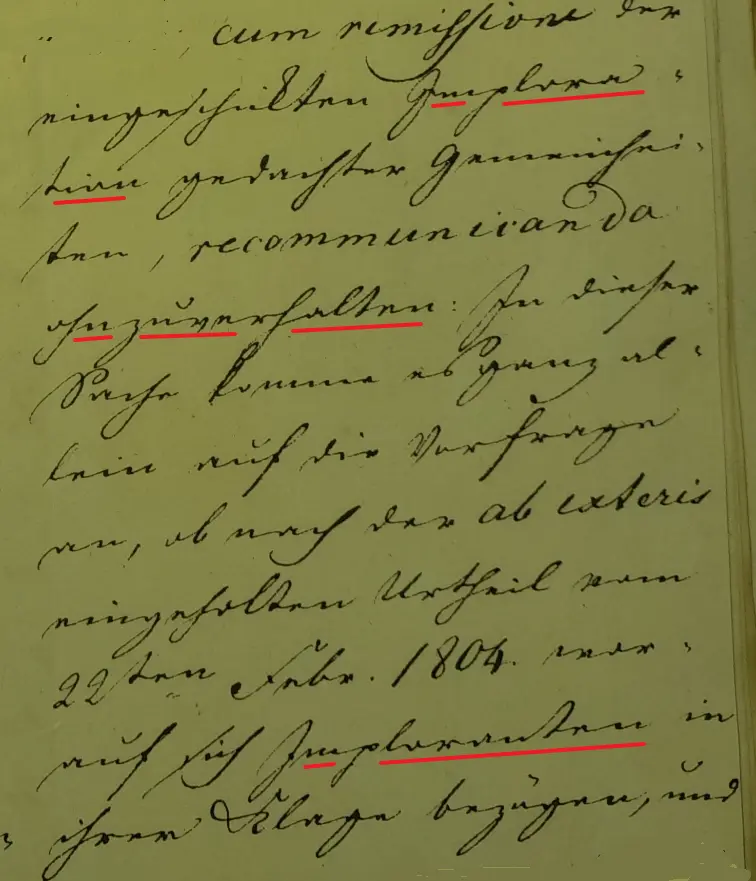 cum remissione der
eingeschickten Implora-
tion gedachter Gemeinhei-
ten, recommunicando
ohnzuverhalten: In dieser
Sache komme es ganz al-
lein auf die Vorfrage
an, ob nach der ab exteris
eingeholten Urtheil vom
22ten Febr. 1804. wor-
auf sich Imploranten in
ihrer Klage bezögen, und